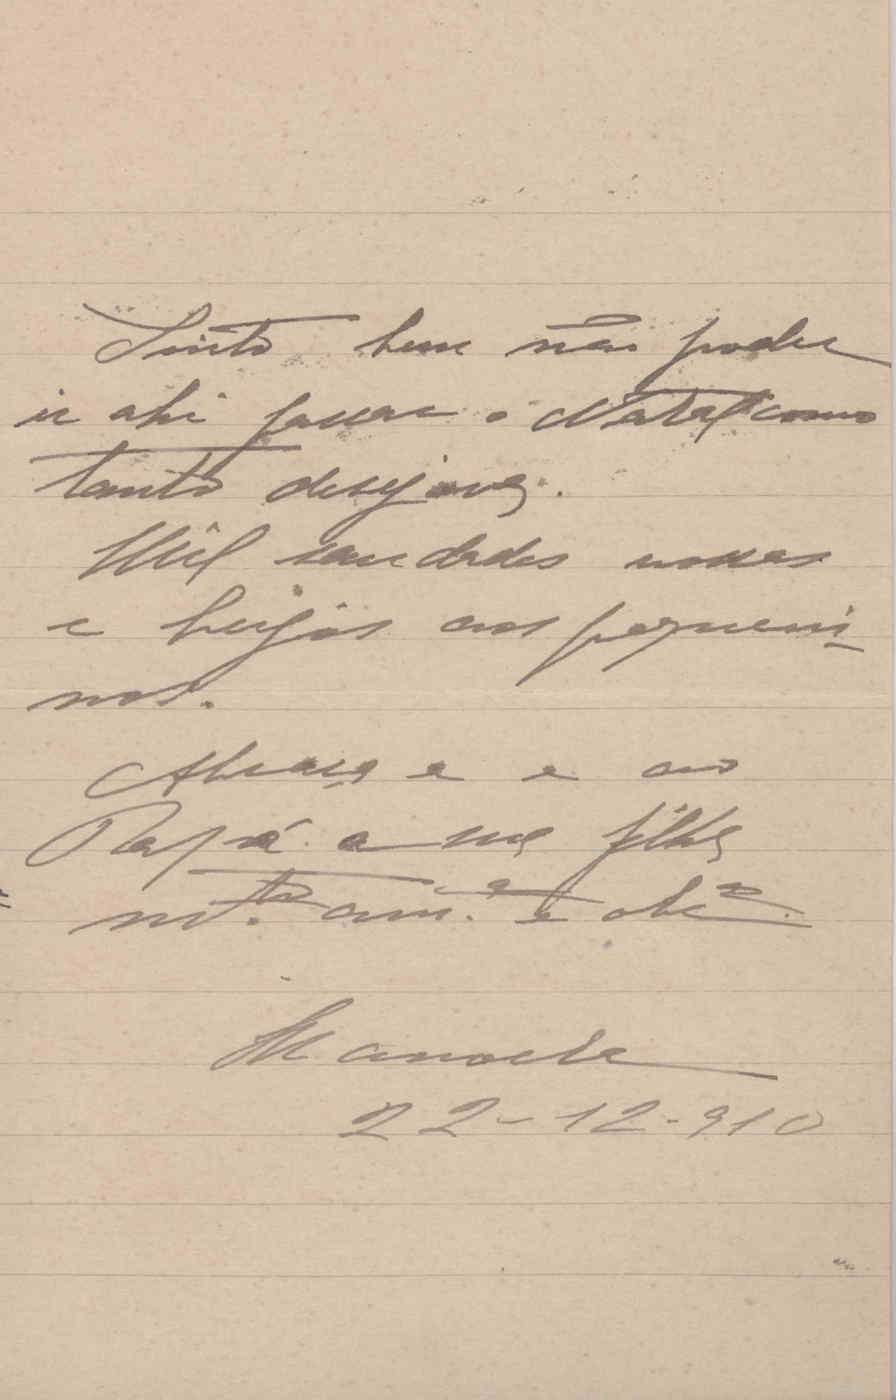 Sinto bem não poder
ir ahi passar o Natal como
tanto desejava.
Mil saudades nossas
e beijos aos pequeni-
nos.
Abraça-a e ao
Papá a sua filha
mt.º am.ª e ob.ª
Manoela
22-12-910